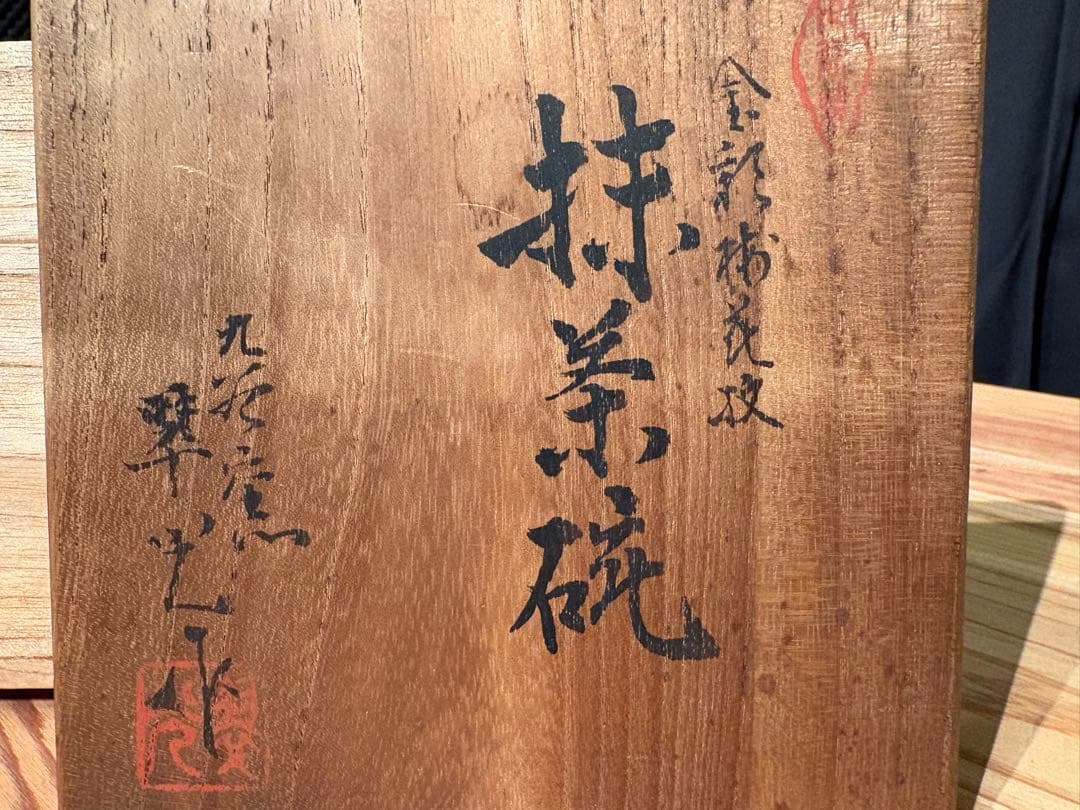 金彩梅花紋
抹茶碗
九谷窯
翠光作